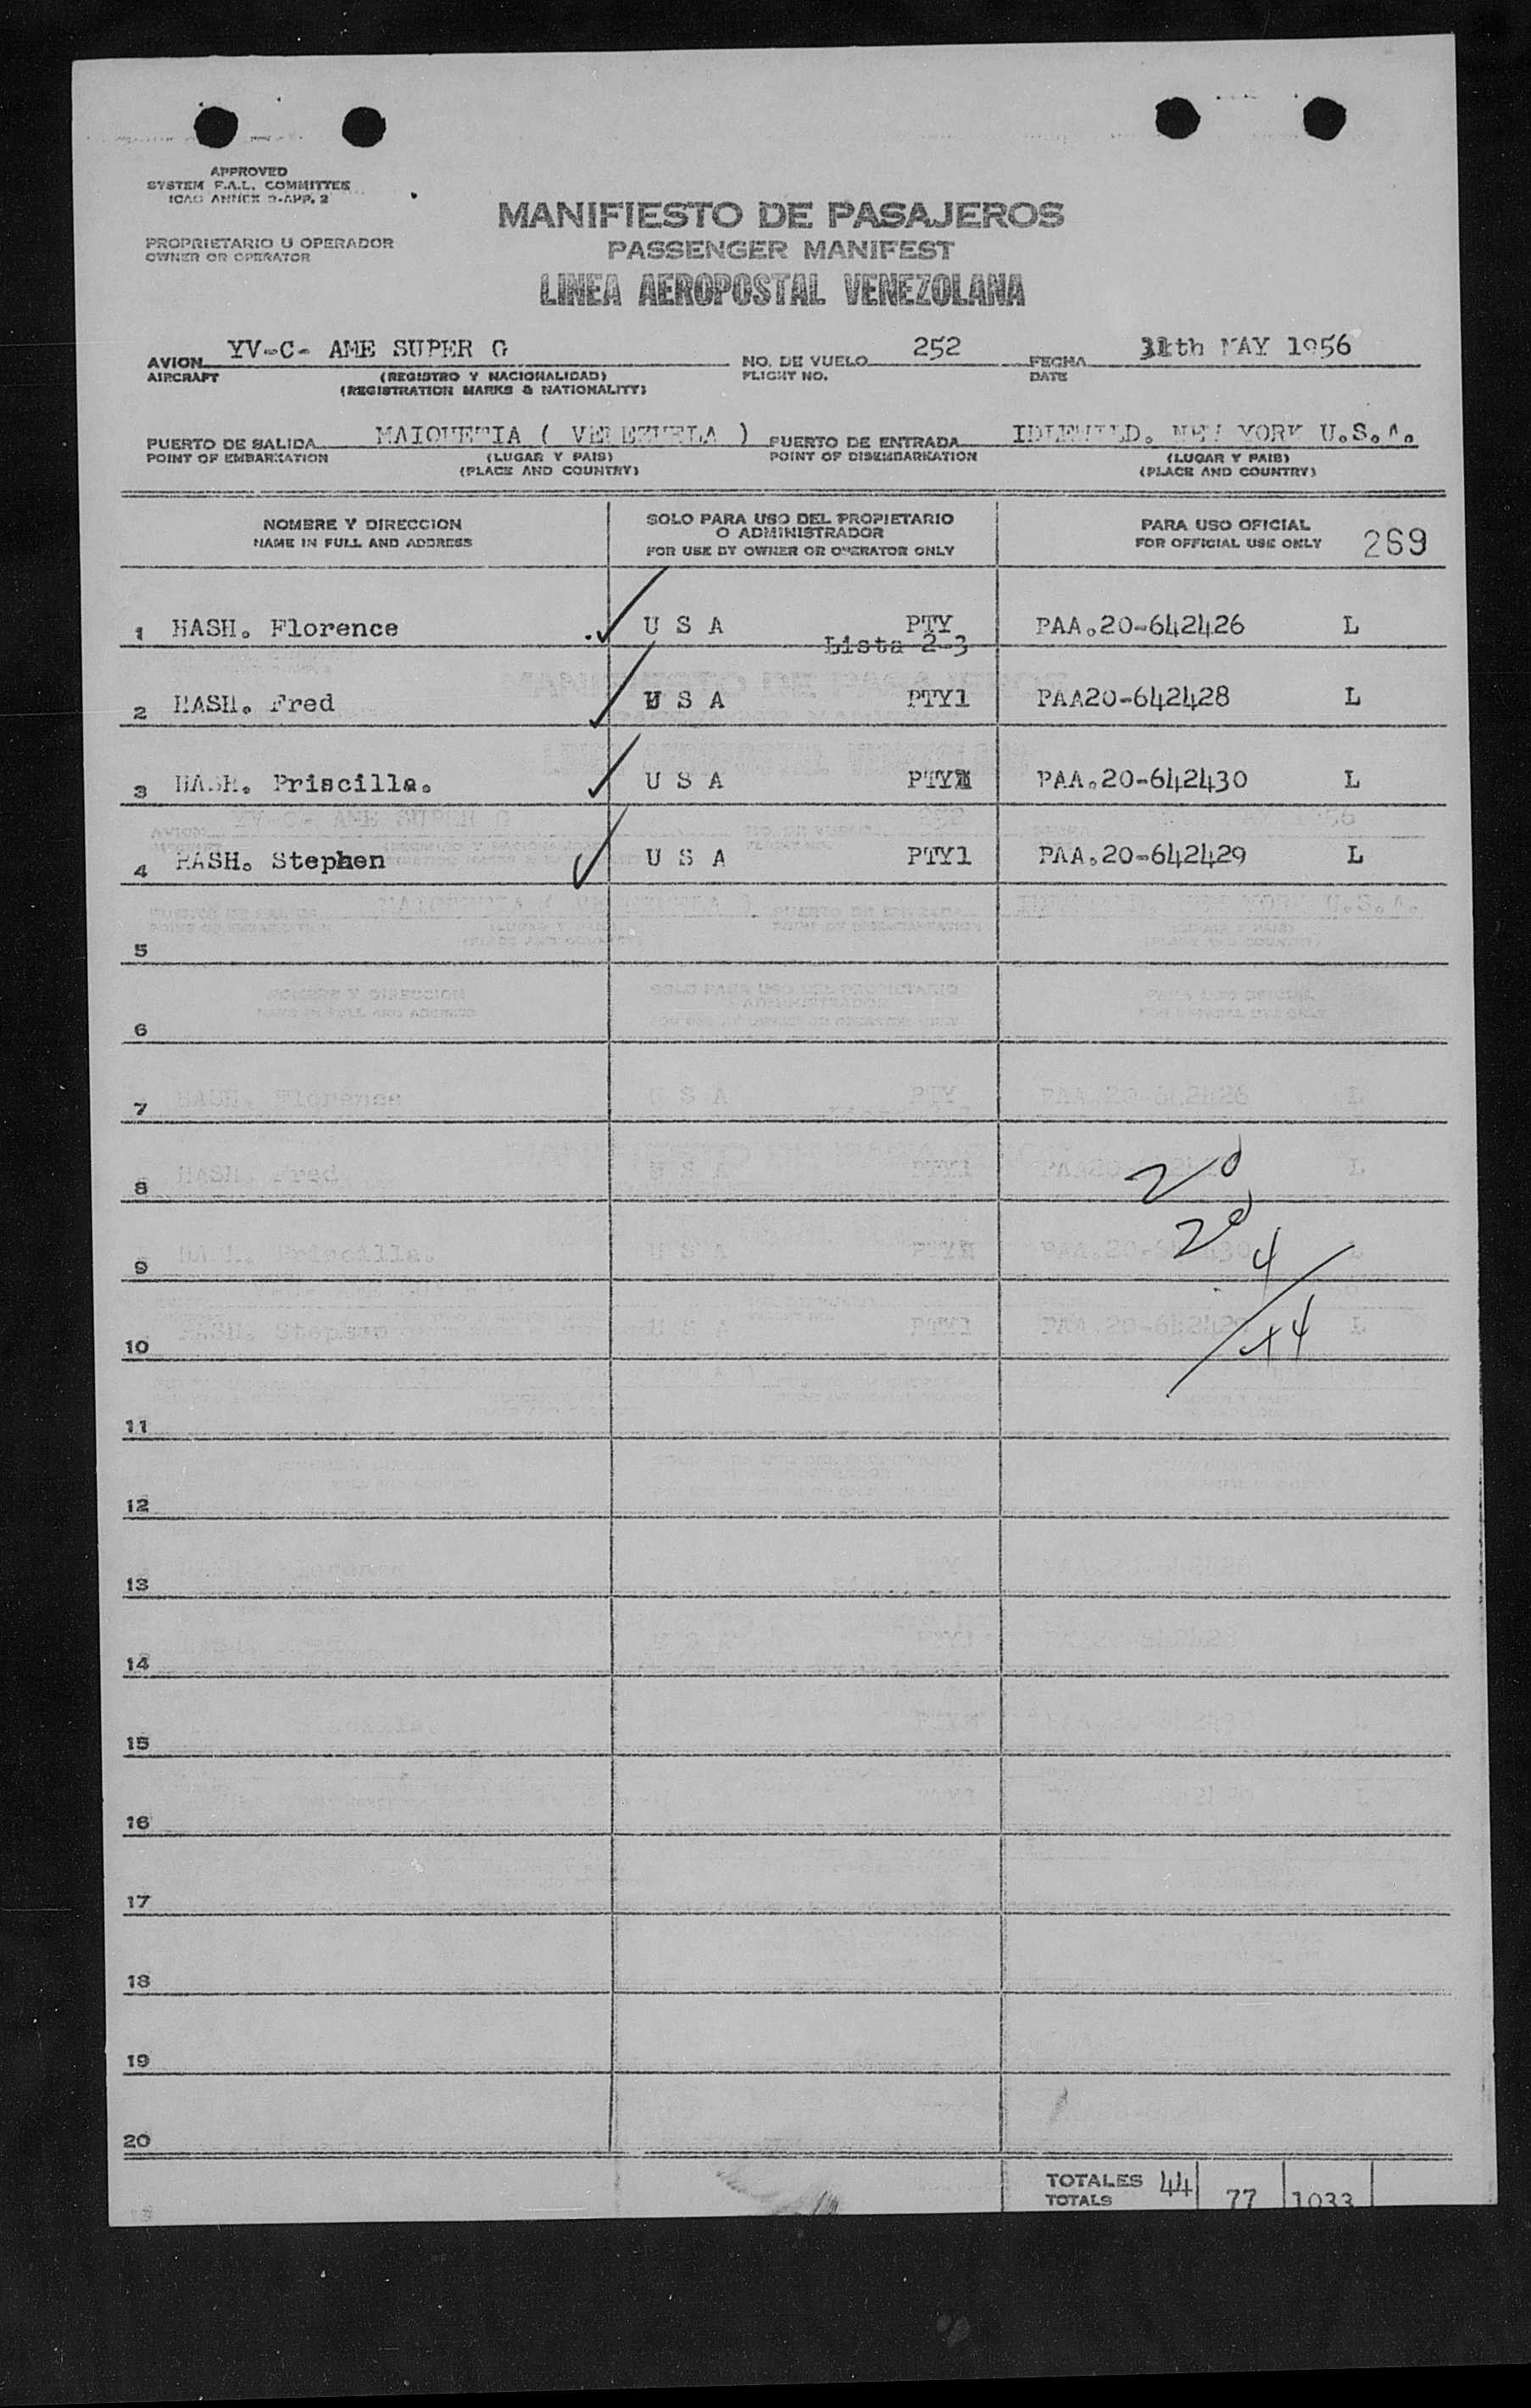 APPROVED
SYSTEM F.A.L. COMMITTEE
ICAO ANNEX 9-APP. 2
PROPRIETARIO U OPERADOR
OWNER OR OPERATOR
MANIFIESTO DE PASAJEROS
PASSENGER MANIFEST
LINEA AEROPOSTAL VENEZOLANA
AVION YV-C- AME SUPER G NO. DE VUELO 252 FECHA 31th MAY 1956
AIRCRAFT (REGISTRO Y NACIONALIDAD) FLIGHT NO. DATE
(REGISTRATION MARKS & NATIONALITY)
PUERTO DE SALIDA MAIQUETIA ( VENEZUELA ) PUERTO DE ENTRADA IDLEWILD. NEW YORK U.S.A.
POINT OF EMBARKATION (LUGAR Y PAIS) POINT OF DISEMBARKATION (LUGAR Y PAIS)
(PLACE AND COUNTRY) (PLACE AND COUNTRY)
NOMBRE Y DIRECCION SOLO PARA USO DEL PROPIETARIO PARA USO OFICIAL
O ADMINISTRADOR
NAME IN FULL AND ADDRESS FOR USE BY OWNER OR OPERATOR ONLY FOR OFFICIAL USE ONLY 269
1 HASH. Florence U S A PTY PAA.20-642426 L
Lista 2-3
2 HASH. Fred U S A PTY1 PAA20-642428 L
3 HASH. Priscilla. U S A PTY PAA.20-642430 L
4 HASH. Stephen U S A PTY1 PAA.20-642429 L
5
6
7
8
9
4
10
11
12
13
14
15
16
17
18
19
20
TOTALES 44 77 1033
TOTALS